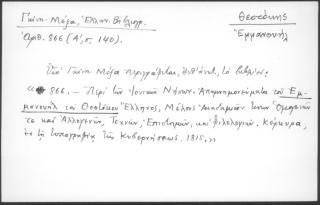 Γκίνη-Μέξα, Ἑλλην. Βιβλιογρ.
Ἀριθ. 866 (Α', σ. 140).
Θεοτόκης
Ἐμμανουήλ
Οἱ Γκίνη-Μέξα περιγράφουν, τὸ βιβλίον:
« 866. — Περὶ τῶν Ἰονικῶν Νήσων. Ἀπομνημονεύματα τοῦ Ἐμ-
μανουὴλ τοῦ Θεοτόκου Ἕλληνος, Μέλους Ἀκαδημιῶν Ὁμογενῶν
τε καὶ Ἀλλογενῶν, Τεχνῶν, Ἐπιστημῶν, καὶ Φιλολογιῶν. Κέρκυρα,
τῇ τυπογραφίᾳ τῆς Κυβερνήσεως. 1815. »